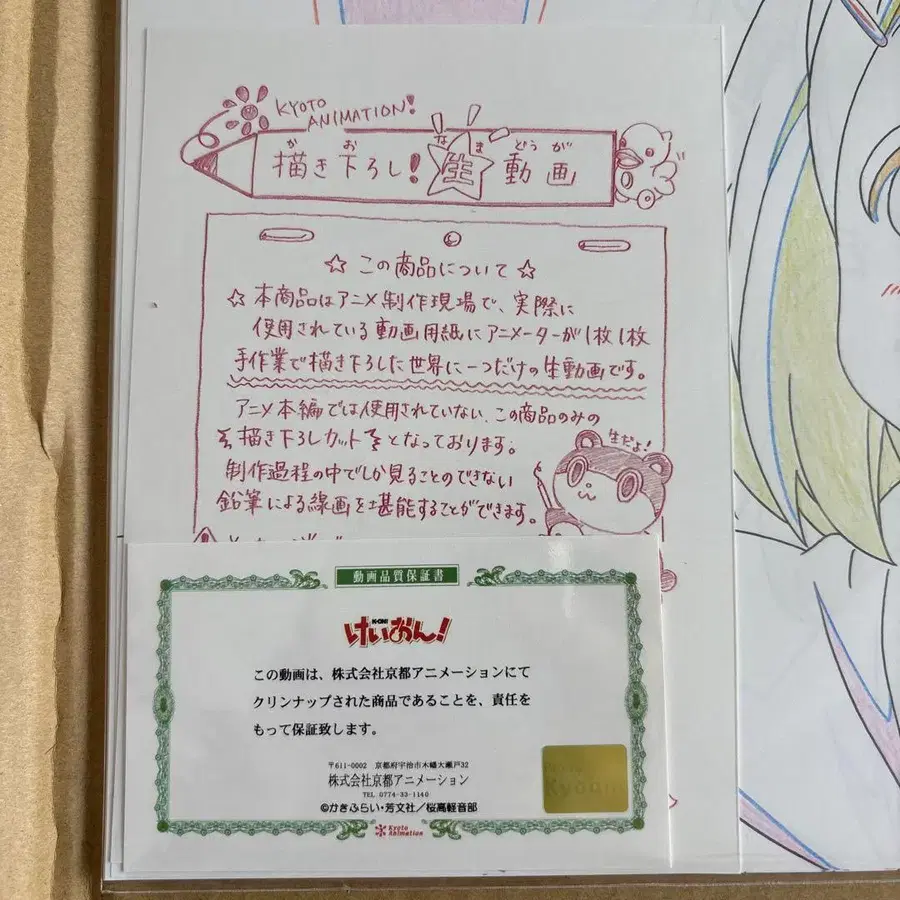 KYOTO
ANIMATION!
か お な ま どう が
描き下ろし! 生 動画
☆ この商品について ☆
☆ 本商品はアニメ制作現場で、実際に
使用されている動画用紙にアニメーターが1枚1枚
手作業で描き下ろした世界に一つだけの生動画です。
アニメ本編では使用されていない、この商品のみの
描き下ろしカットとなっております。
生だよ!
制作過程の中でしか見ることのできない
鉛筆による線画を堪能することができます。
動画品質保証書
K-ON!
けいおん!
この動画は、株式会社京都アニメーションにて
クリンナップされた商品であることを、責任を
もって保証致します。
〒611-0002 京都府宇治市木幡大瀬戸32
株式会社京都アニメーション
TEL 0774-33-1140
©かきふらい・芳文社/桜高軽音部
Kyoto
Animation